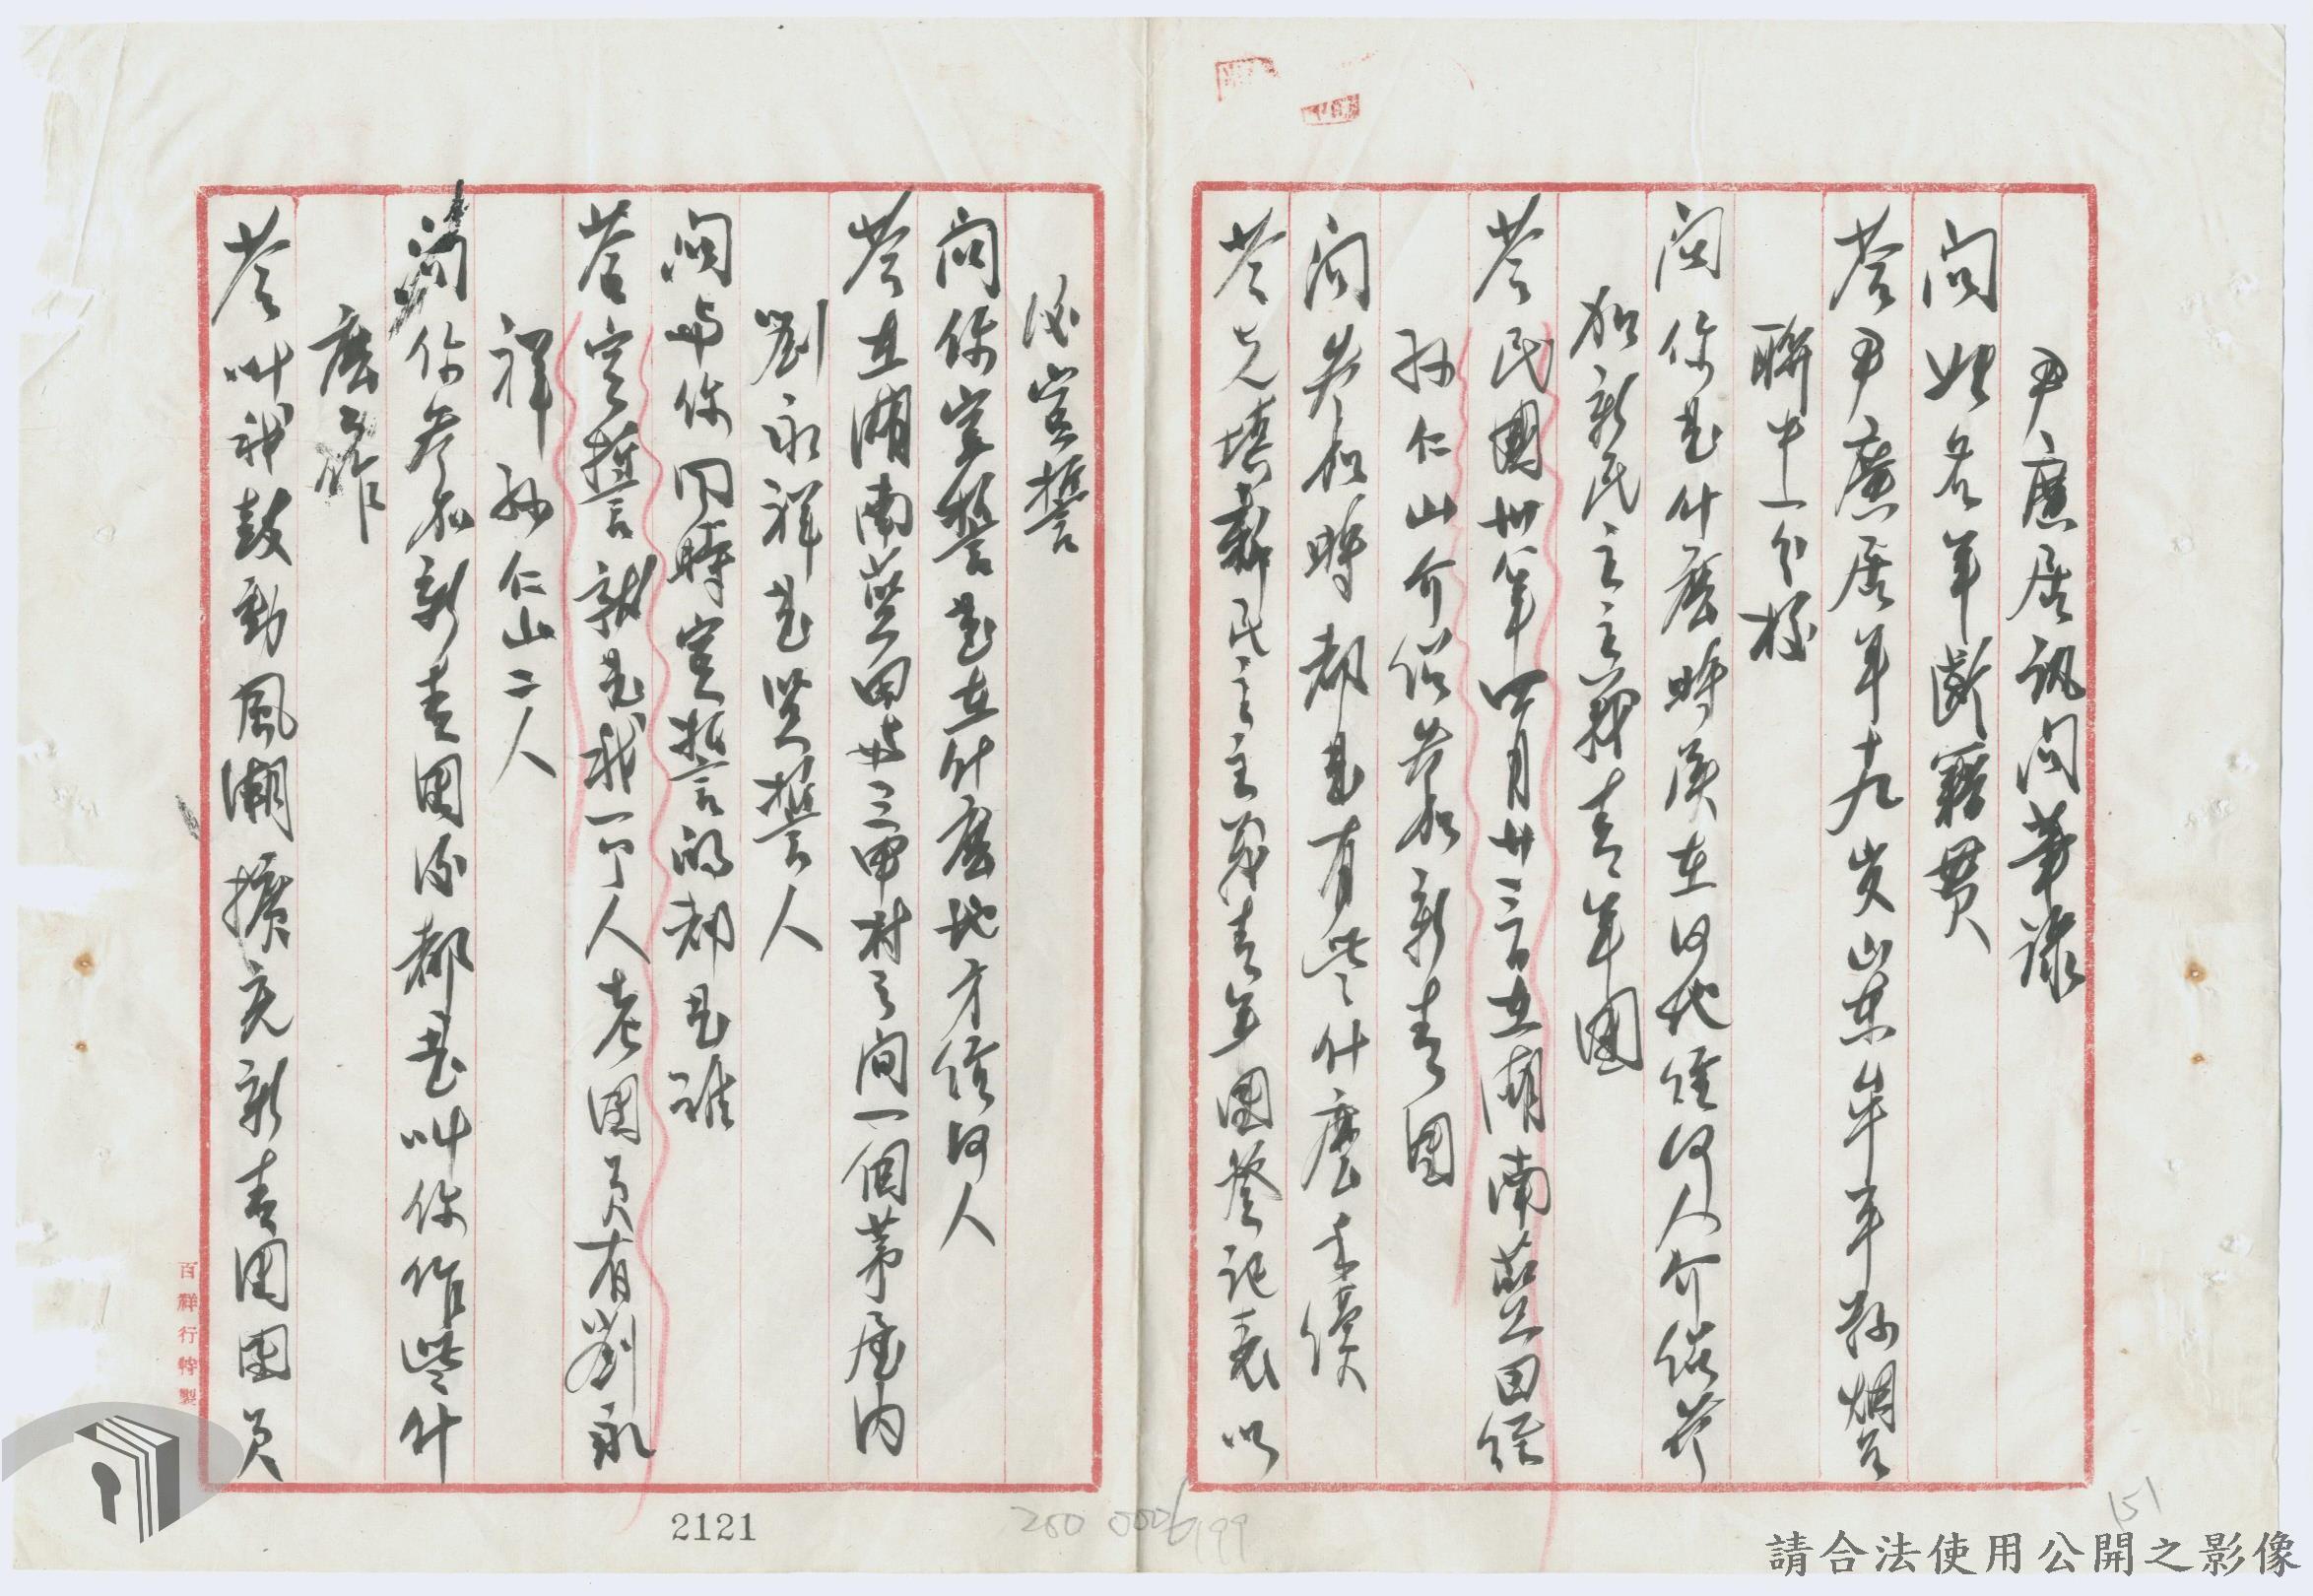 尹廣居訊問筆錄
問 姓名年齡籍貫
答 尹廣居年十九歲山東牟平縣烟台
聯中一分校
問 你是什麼時候在何地經何人介紹參
加新民主主義青年團
答 民國卅八年四月廿三日在湖南藍田經
孫仁山介紹參加新青團
問 參加時都是有些什麼手續
答 先填新民主主義青年團登記表以
後宣誓
問 你宣誓是在什麼地方經何人
答 在湖南藍田 三甲村之間一個茅屋內
劉永祥是監誓人
問 與你同時宣誓的都是誰
答 宣誓就是我一个人老團員有劉永
祥孫仁山二人
問 你參加新青團後都是叫你作些什
麼工作
答 叫我鼓動風潮擴充新青團團員
百祥行特製
2121
200 0006 199
151
請合法使用公開之影像